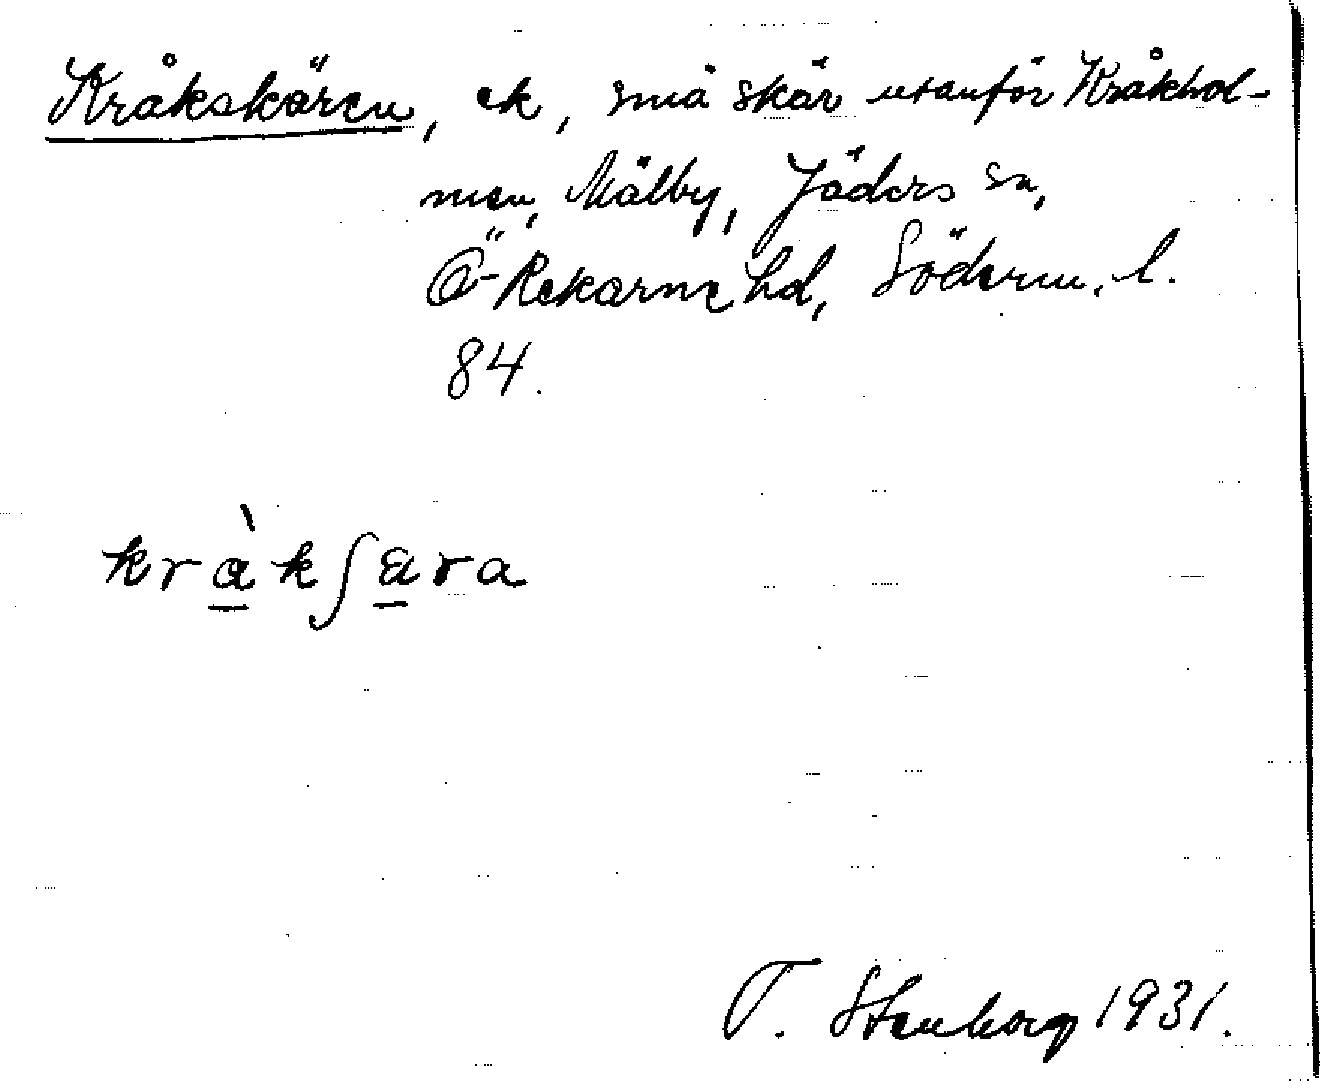 Kråkskären, ek, små skär utanför Kråkhol-
men, Mälby, Jäders sn,
Ö-Rekarne hd, Söderm. l.
84.
kràkʃæra
T. Stenborg 1931.